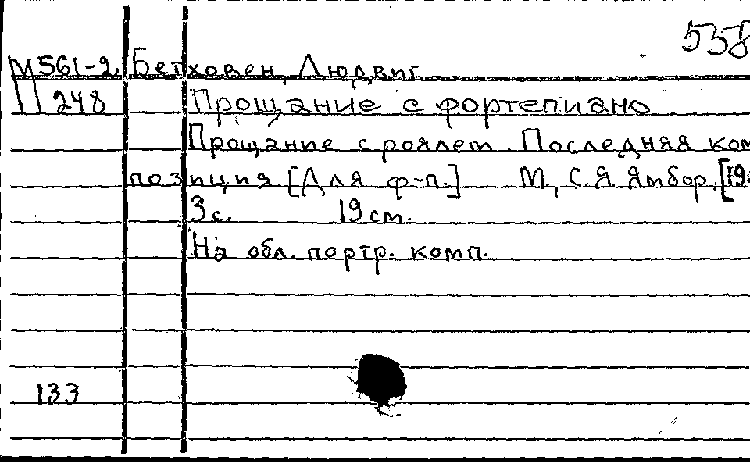 558
М561-2 Бетховен, Людвиг
11 248 Прощание с фортепиано
Прощание с роялем. Последняя ком
позиция [Для ф-п.] М., С.Я. Ямбор, [19
3с. 19 см.
На обл. портр. комп.
133